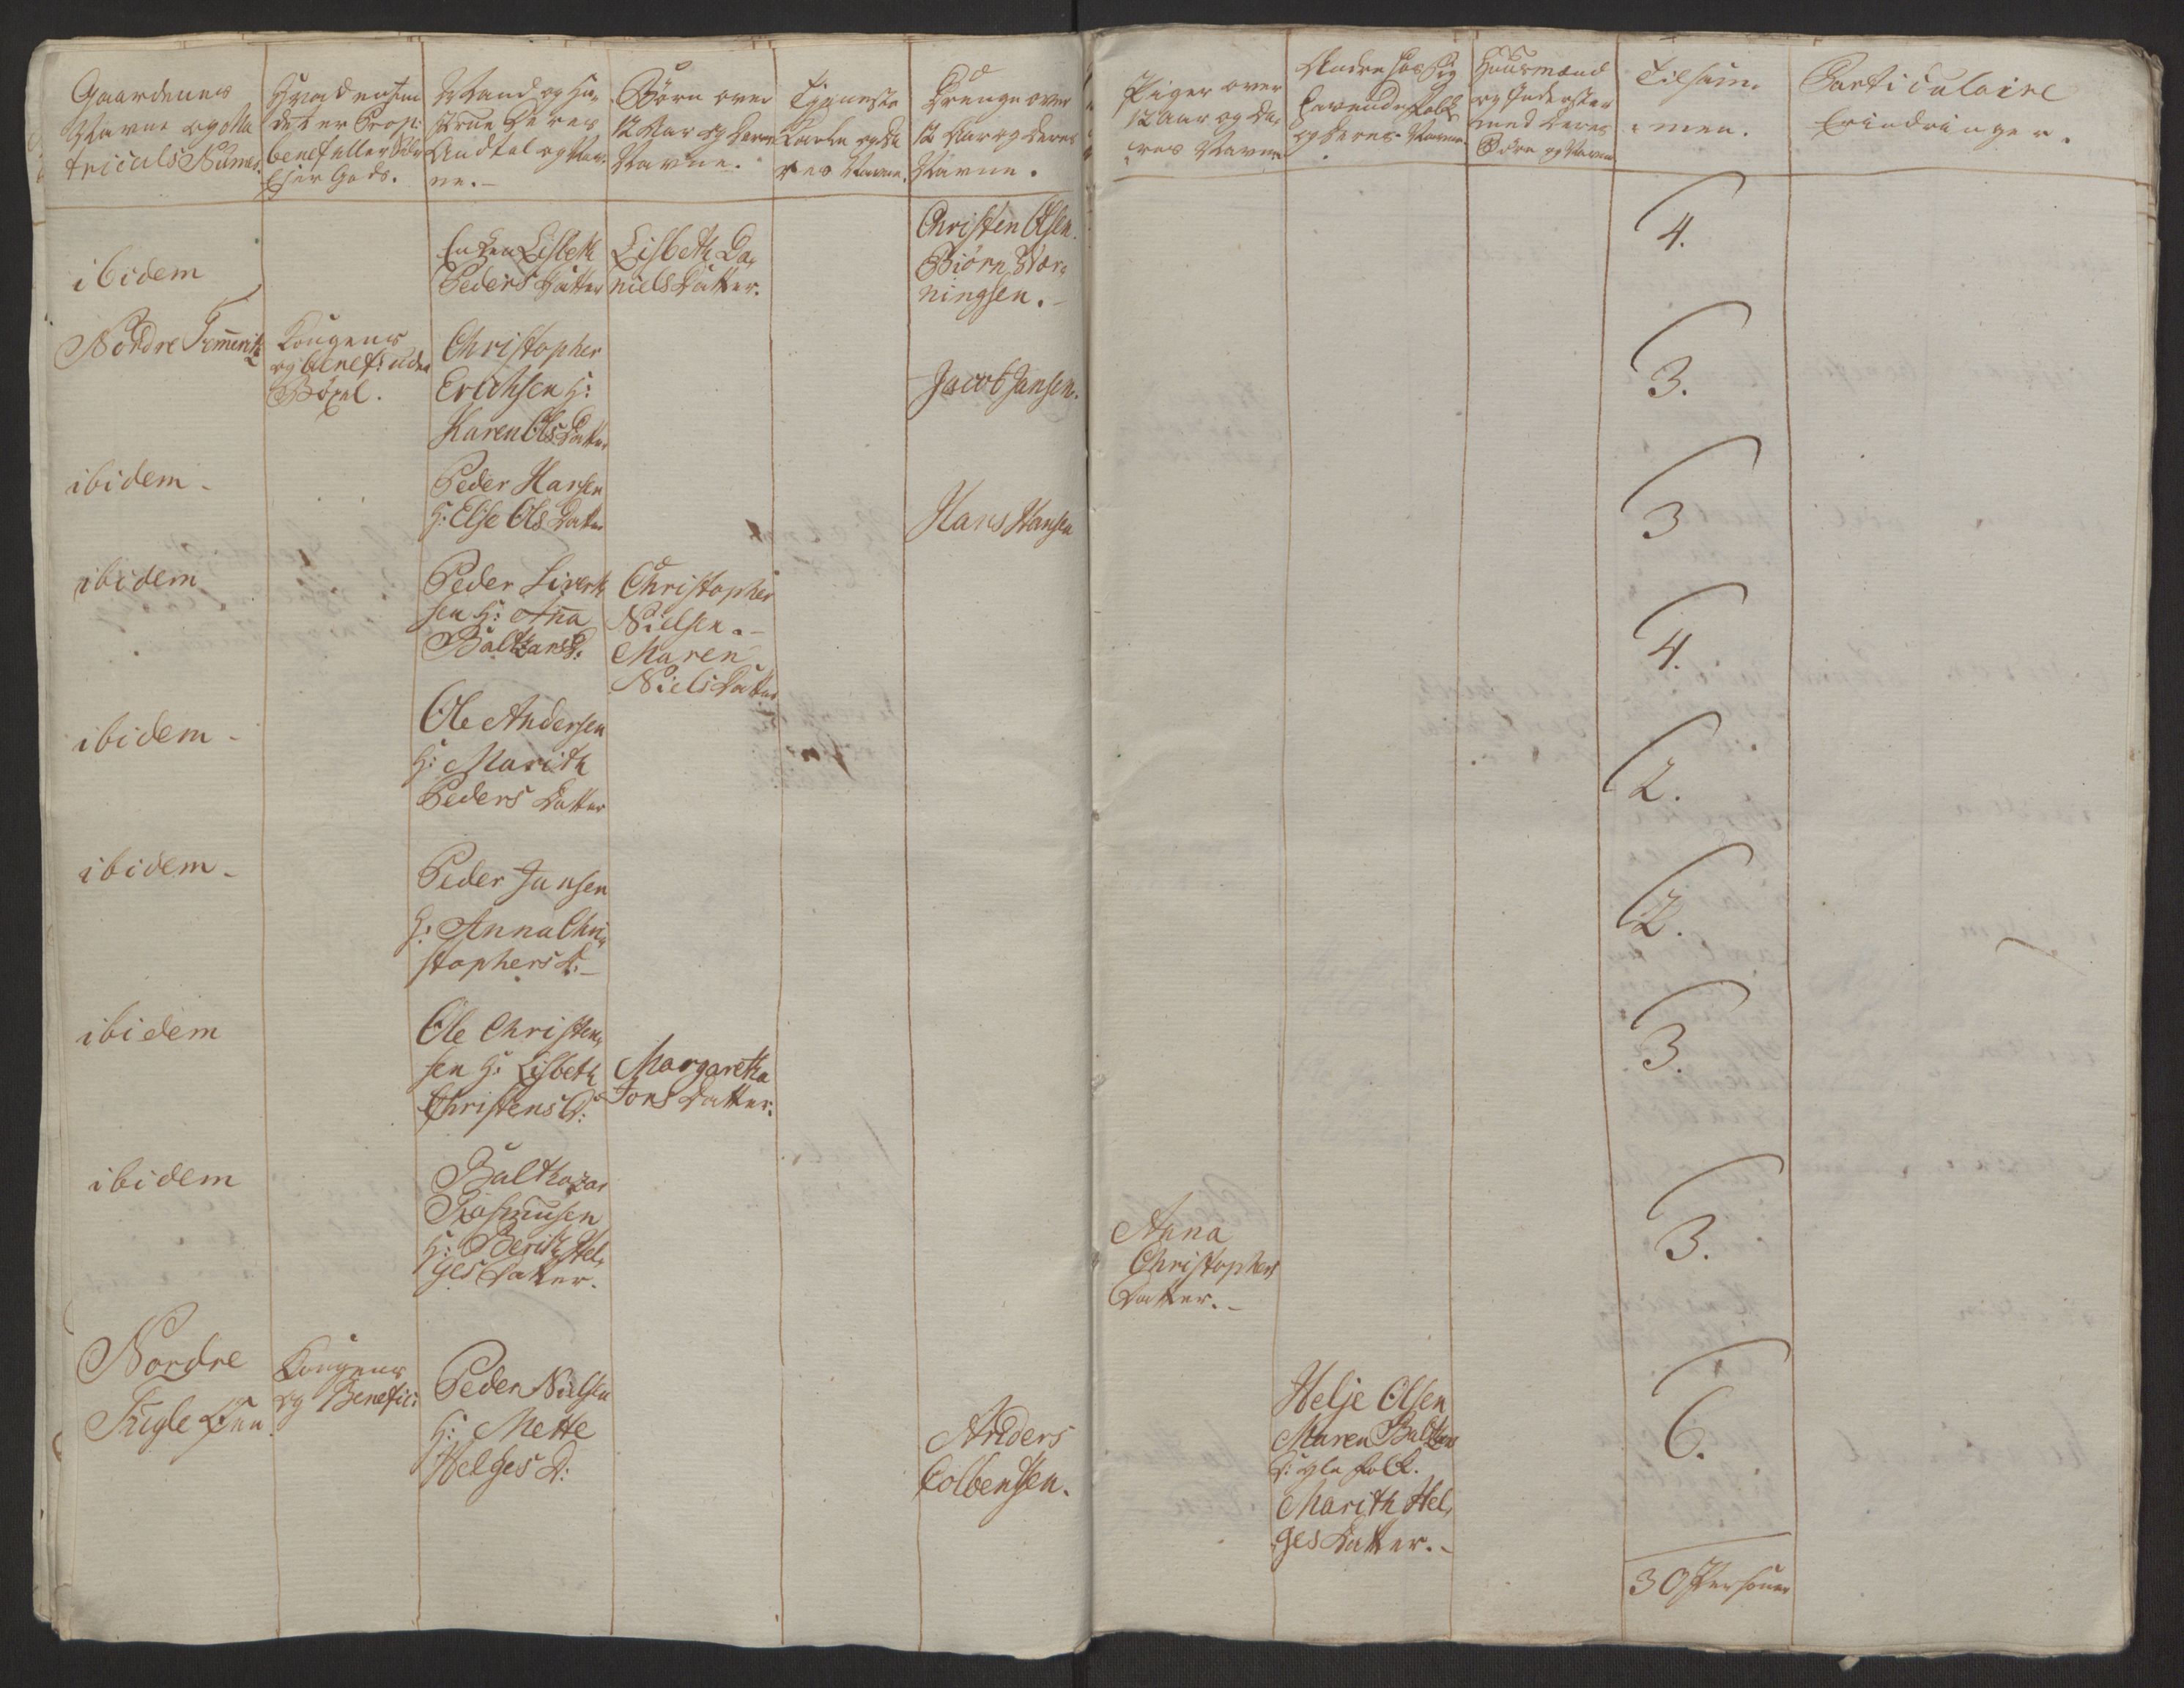 Gaardenes
Navne og Ma
triculs Numer.
det er Prop:
benef: eller
Ejer Gods.
Mand og Hu,
strue Deres
Andtal og Nav,
ne.-
Børn over
12 Aar og deres
Navne.
Tieneste
Karle og De
res Navne.
Drenge over
12 Aar og deres
Navne.
Piger over
12 Aar og De,
res Navne
Andre hos sig
havende folk
og deres Navne
Huusmænd
og Inderster
med deres
Børn og Navne
Tilsam,
men.
Particulaire
Erindringer.
ibidem
Enken Lisbeth
Peders Datter
Lisbeth Da,
niels Datter.
Christen Olsen.
Biørn Bær,
ningsen.-
4.
Nordre
Kongens
og benef: uden
Bøxel.
Christopher
Erichsen H:
Karen Ols Datter
Jacob Jansen.
3.
ibidem-
Peder Hansen
H: Else Ols Datter
Hans Hansen
3
ibidem
Peder Sivert
sen H: Anna
Baltzars D:
Christopher
Nielsen.-
Maren
Niels Datter
4.
ibidem-
Ole Andersen
H: Marith
Peders Datter
2.
ibidem-
Peder Jansen
H: Anna Chri,
stophers D.-
2.
ibidem
Ole Christen,
sen H: Lisbeth
Christens D:
Margaretha
Jons Datter.
3.
ibidem
Balthazar
Rasmusen
H: Berith Hel,
ges Datter.
Anna
Christophers
Datter.-
3.
Nordre
Kongens
og Benefic:
Peder Nielsen
H: Mette
Helges D:
Anders
Colbensen.
Helje Olsen
Maren Baltzars
D: gle folk.
Marith Hel,
ges Datter.-
6.
30 Personer